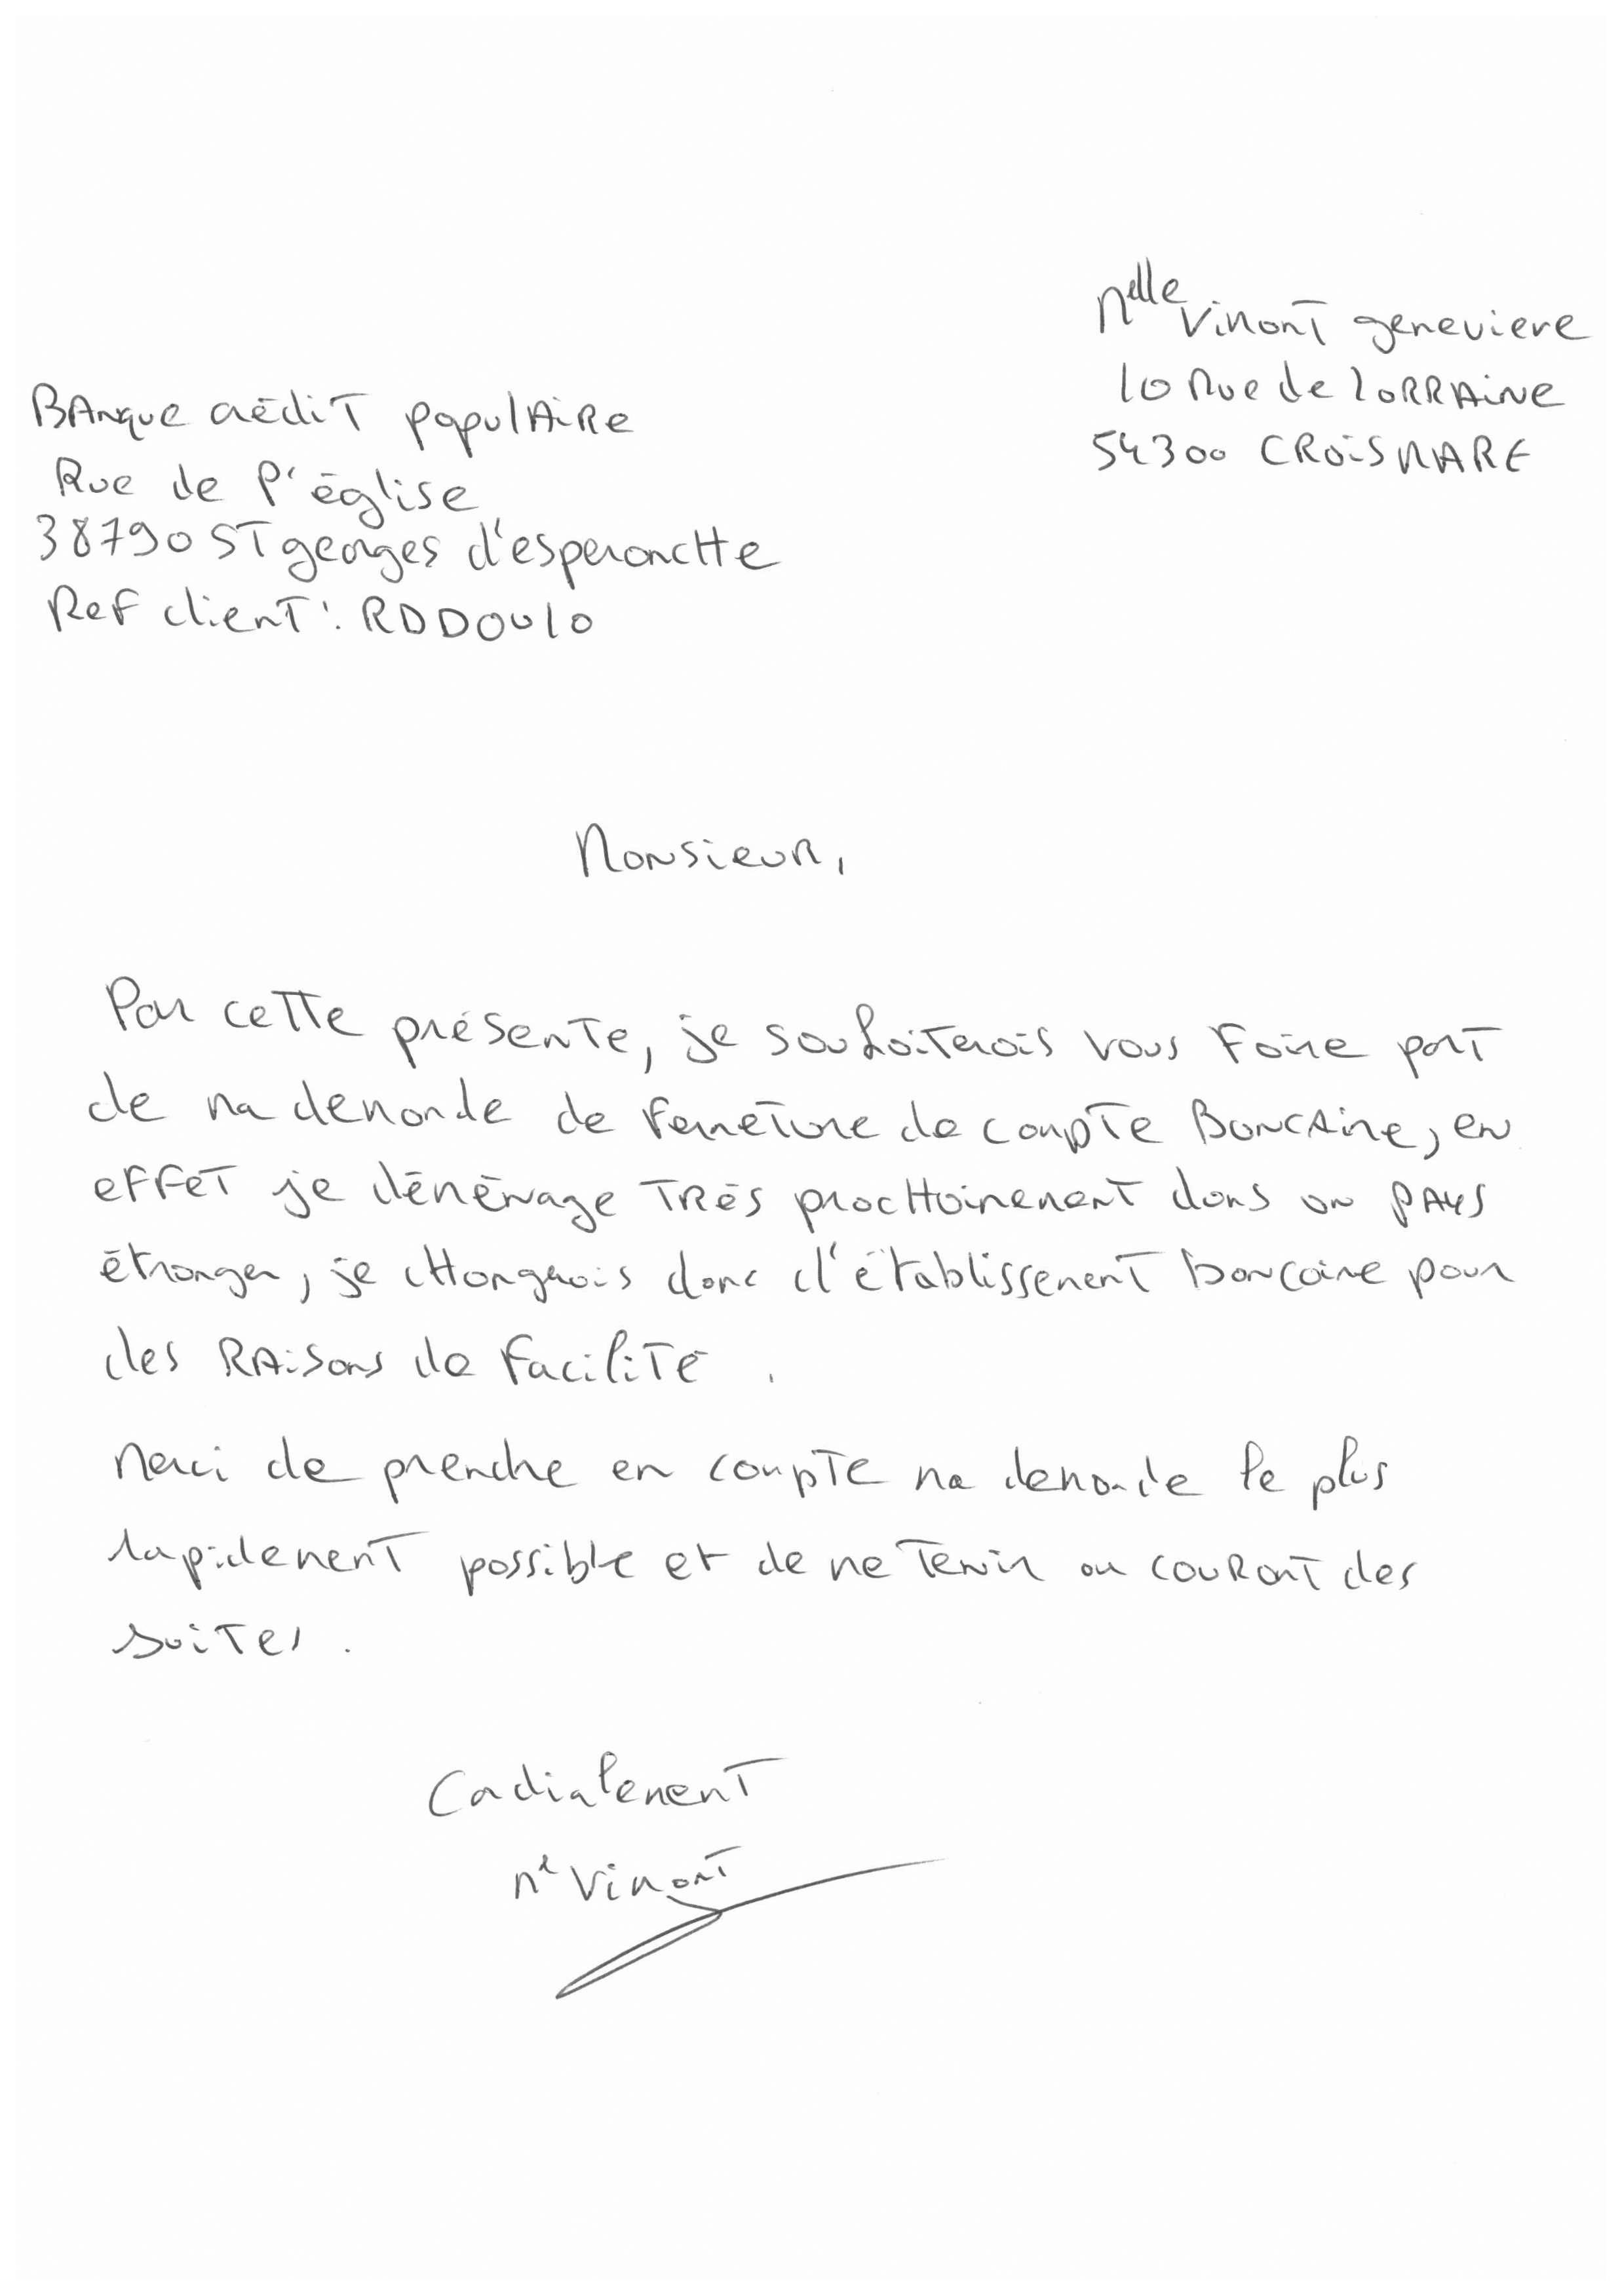 Melle Vimont genevieve
10 Rue de lorraine
54300 CROISMARE
Banque crédit populaire
Rue de l'église
38790 ST georges d'esperanche
Ref client : RDDOU10
Monsieur,
Par cette présente, je souhaiterais vous faire part
de ma demande de fermeture de compte Bancaire, en
effet je déménage très prochainement dans un pays
étranger, je changerais donc d'établissement bancaire pour
des raisons de facilité.
Merci de prendre en compte ma demande le plus
rapidement possible et de me tenir au courant des
suites.
Cordialement
Me Vimont